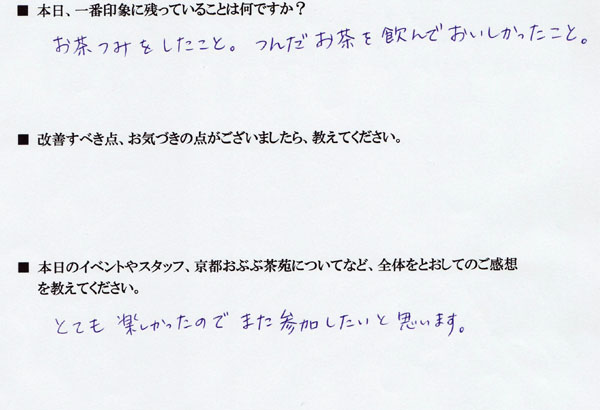 ■ 本日、一番印象に残っていることは何ですか？
お茶つみをしたこと。つんだお茶を飲んでおいしかったこと。
■ 改善すべき点、お気づきの点がございましたら、教えてください。
■ 本日のイベントやスタッフ、京都おぶぶ茶苑についてなど、全体をとおしてのご感想
を教えてください。
とても楽しかったのでまた参加したいと思います。